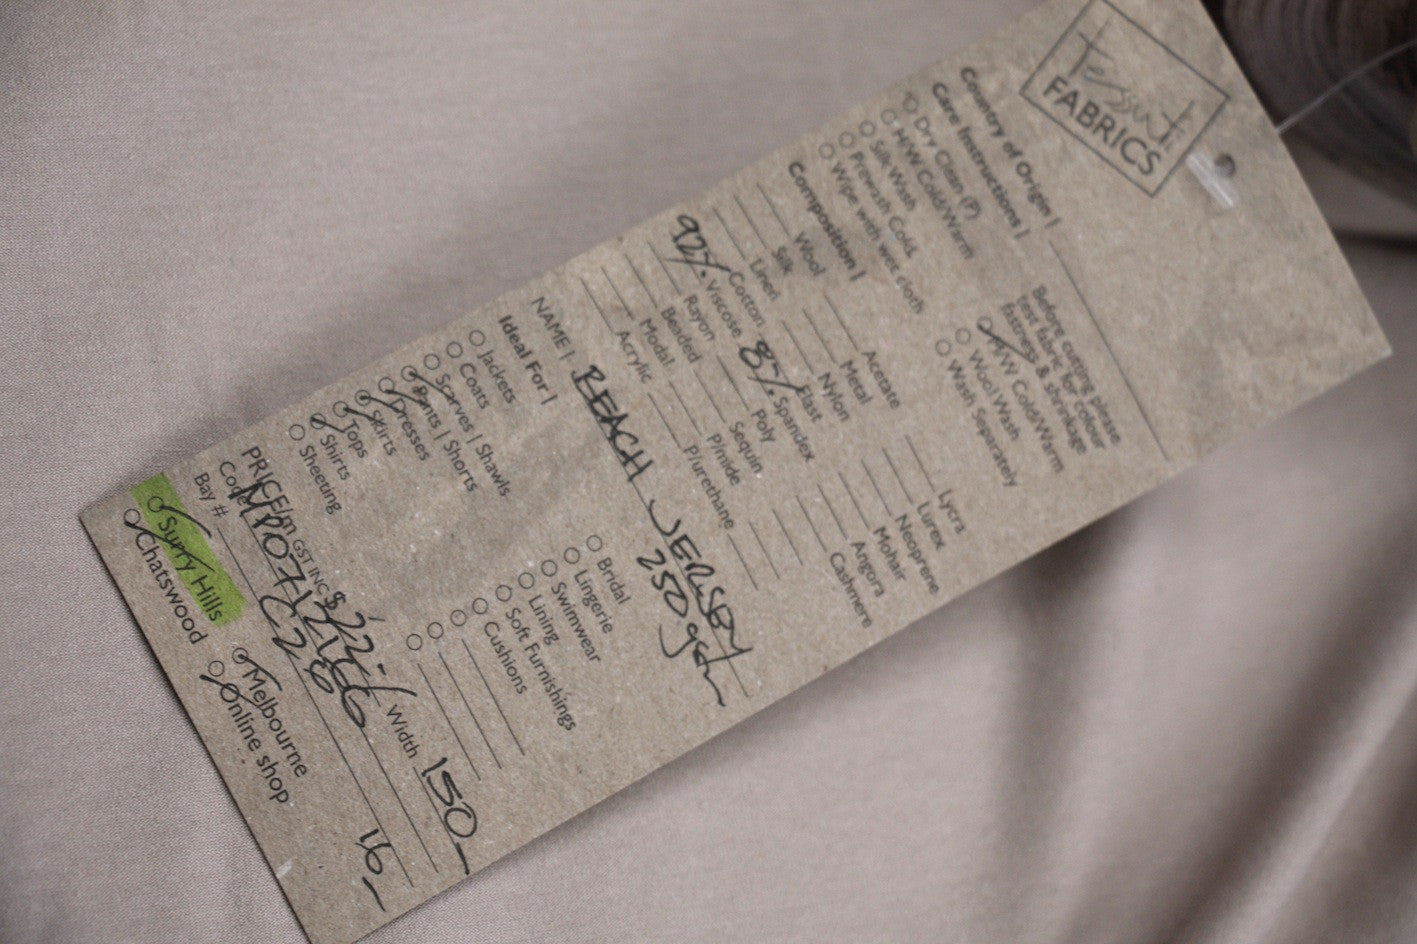 Tessuti
FABRICS
Country of Origin |
Care Instructions |
Dry Clean (P)
H/W Cold/Warm
Silk Wash
Prewash Cold
Wipe with wet cloth
Before cutting please
test fabric for colour
fastness & shrinkage
M/W Cold/Warm
Wool Wash
Wash Separately
Composition |
Wool
Silk
Linen
Cotton
92% Viscose
Rayon
Beaded
Modal
Acrylic
Acetate
Metal
Nylon
Elast
8% Spandex
Poly
Sequin
P/mide
P/urethane
Lycra
Lurex
Neoprene
Mohair
Angora
Cashmere
NAME | BEACH JERSEY
250gsm
Ideal For |
Jackets
Coats
Scarves | Shawls
Pants | Shorts
Dresses
Skirts
Tops
Shirts
Sheeting
Bridal
Lingerie
Swimwear
Lining
Soft Furnishings
Cushions
PRICE/m GST INC $22- Width 150
Code
Bay # C286 16
Surry Hills
Chatswood
Melbourne
Online shop